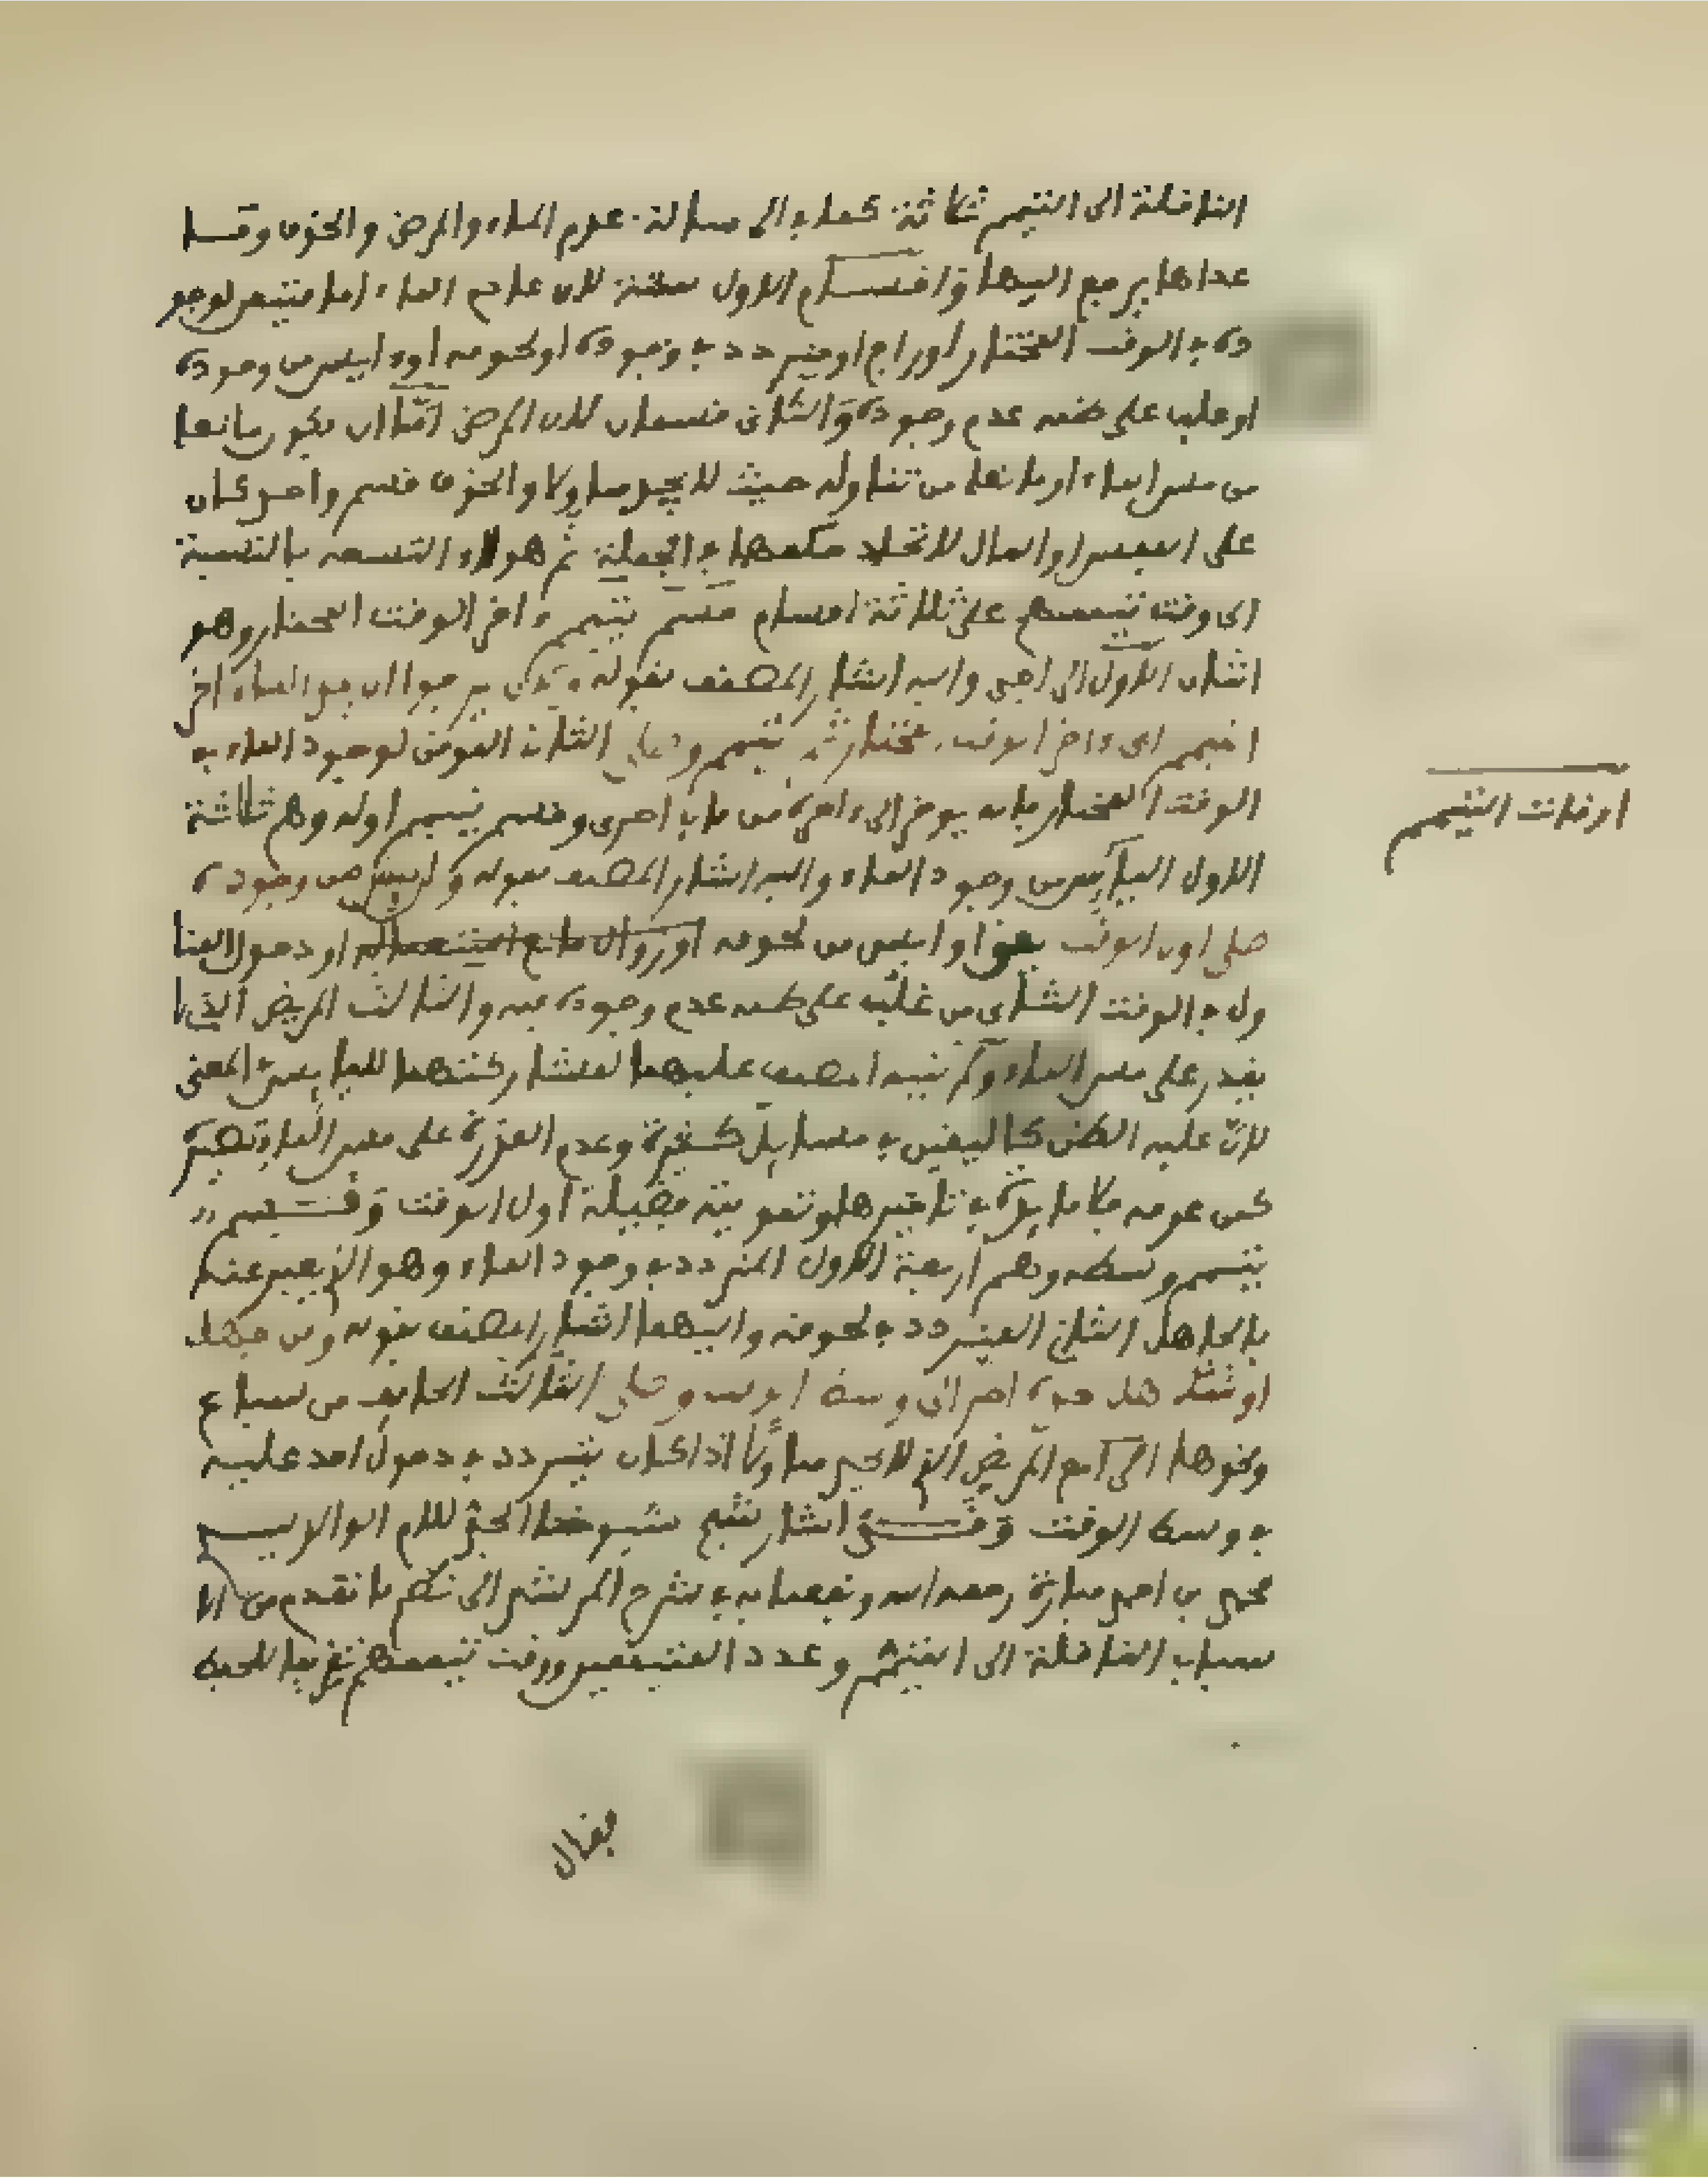 الناقلة الى التيمم ثلاثة كما في الرسالة عدم الماء والمرض والخوف وما
عداها يرجع اليها واقسام الاول ستة لان عادم الماء اما متيقن لوجو
ده في الوقت المختار او راج او متردد في وجوده او لحوقه او ءايس من وجوده
او غلب على ظنه عدم وجوده والثاني قسمان لان المرض اما ان يكون مانعا
من مس الماء او مانعا من تناوله حيث لا يجد مناولا والخوف قسم واحد كان
على النفس او المال لاتحاد حكمها في الجملة ثم هؤلاء التسعة بالنسبة
الى وقت تيممهم على ثلاثة اقسام قسم يتيمم ءاخر الوقت المختار وهو
اثنان الاول الراجي واليه اشار المصنف بقوله يرجوا الماء اخر
التيمم اي ءاخر الوقت المختار ثم يتيمم الثاني الموقن لوجود الماء في
الوقت المختار فانه يوخر الى ءاخره من باب احرى وقسم يتيمم اوله وهم ثلاثة
الاول اليائس من وجود الماء واليه اشار المصنف بقوله من وجوده
صلى اول الوقت او ايس من لحوقه او زوال مانع استعماله او دخول المنا
ول في الوقت الثاني من غلب على ظنه عدم وجوده فيه والثالث المريض الذي لا
يقدر على مس الماء ولم ينبه المصنف عليهما لمشاركتهما لليايس في المعنى
لان غلبة الظن كاليقين في مسايل كثيرة وعدم القدرة على مس الماء تصيره
كمن عدمه فلا فايدة في تاخيرها وتفويته فضيلة اول الوقت وقسم
يتيمم وسطه وهم اربعة الاول المتردد في وجود الماء وهو الذي يعبر عنه
بالجاهل الثاني المتردد في لحوقه واليهما اشار المصنف بقوله ومن جهل
او شك هل اخر الى وسط الوقت وصلى الثالث الخايف من سباع
ونحوها الرابع المريض الذي لا يجد مناولا اذا كان يتردد في دخول احد عليه
في وسط الوقت وقد اشار شيخ شيوخنا
محمد بن احمد ميارة رحمه الله ونفعنا به في شرح المرشد الى نظم ما تقدم من الا
سباب الناقلة الى التيمم وعدد المتيممين ووقت تيممهم تقريبا للحفظ
فقال
اوقات التيمم